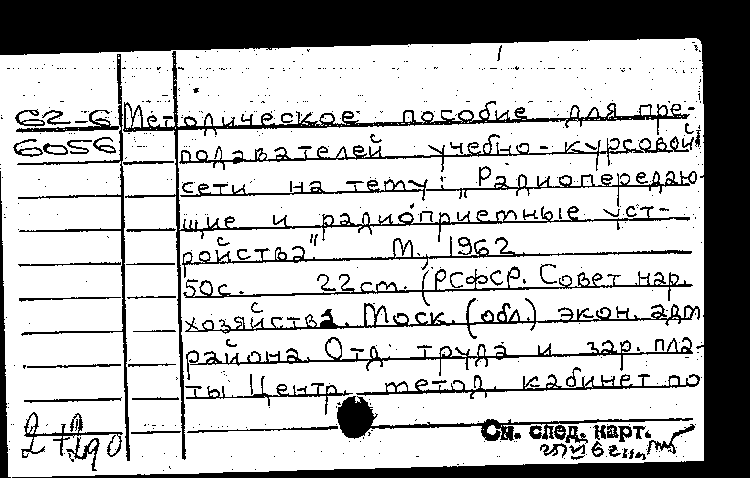 62-6 Методическое пособие для пре-
6056 подавателей учебно-курсовой
сети на тему: „Радиопередаю-
щие и радиоприемные уст-
ройства". М., 1962
50с. 22см. (РСФСР. Совет нар.
хозяйства. Моск. (обл.) экон. адм
района. Отд. труда и зар. пла-
ты Центр. метод. кабинет по
См. след. карт.